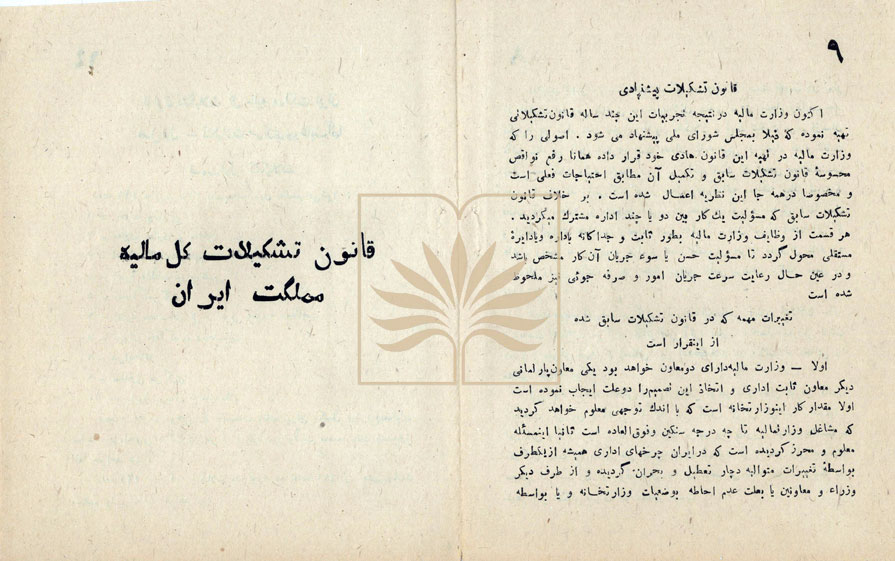 ۹
قانون تشکیلات پیشنهادی
اکنون وزارت مالیه در نتیجه تجربیات این چند ساله قانون تشکیلاتی
تهیه نموده که قبلا بمجلس شورای ملی پیشنهاد می شود . اصولی را که
وزارت مالیه در تهیه این قانون هادی خود قرار داده همانا رفع نواقص
محسوسهٔ قانون تشکیلات سابق و تکمیل آن مطابق احتیاجات فعلی است
و مخصوصا در همه جا این نظریه اعمال شده است . بر خلاف قانون
تشکیلات سابق که مسؤلیت یك کار بین دو یا چند اداره مشترك میگردید .
هر قسمت از وظایف وزارت مالیه بطور ثابت و جداگانه باداره و یا دایرهٔ
مستقلی محول گردد تا مسؤلیت حسن یا سوء جریان آن کار مشخص باشد
و در عین حال رعایت سرعت جریان امور و صرفه جوئی نیز ملحوظ
شده است
تغییرات مهمه که در قانون تشکیلات سابق شده
از اینقرار است
اولا — وزارت مالیه دارای دو معاون خواهد بود یکی معاون پارلمانی
دیگر معاون ثابت اداری و اتخاذ این تصمیم را دو علت ایجاب نموده است
اولا مقدار کار اینوزارتخانه است که با اندك توجهی معلوم خواهد گردید
که مشاغل وزارتمالیه تا چه درجه سنگین و فوق‌العاده است ثانیا اینمسئله
معلوم و محرز گردیده است که در ایران چرخهای اداری همیشه از یکطرف
بواسطهٔ تغییرات متوالیه دچار تعطیل و بحران گردیده و از طرف دیگر
وزراء و معاونین یا بعلت عدم احاطه بوضعیات وزارتخانه و یا بواسطه
قانون تشکیلات کل مالیه
مملکت ایران